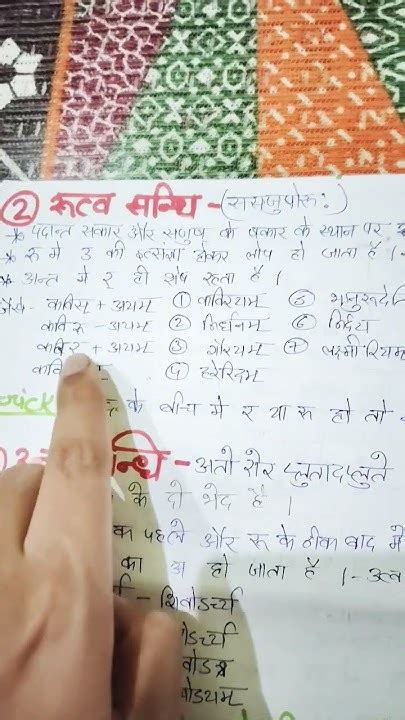 ② रूत्व सन्धि - (ससजुषोरू:)
* पदान्त सकार और सजुष के षकार के स्थान पर
* रू मे उ की इत्संज्ञा होकर लोप हो जाता है ।
* अन्त मे र ही शेष रहता है ।
जैसे- कविस् + अयम् ① कविरयम् ⑤ भानुरूदेति
कविरू - अयम् ② निर्धनम् ⑥ निर्दय
कविर् + अयम् ③ गौरयम् ⑦ लक्ष्मीरियम
कवि ④ हरेरिदम्
के बीच मे र या रू हो तो
न्धि - अतो रोर प्लुतादप्लुते
के दो भेद है ।
क पहले और रू के ठीक बाद मे
का अ हो जाता है ।- उत्व
- शिवोऽर्च्य
ोऽर्च्य
वोऽत्र
ोऽयम